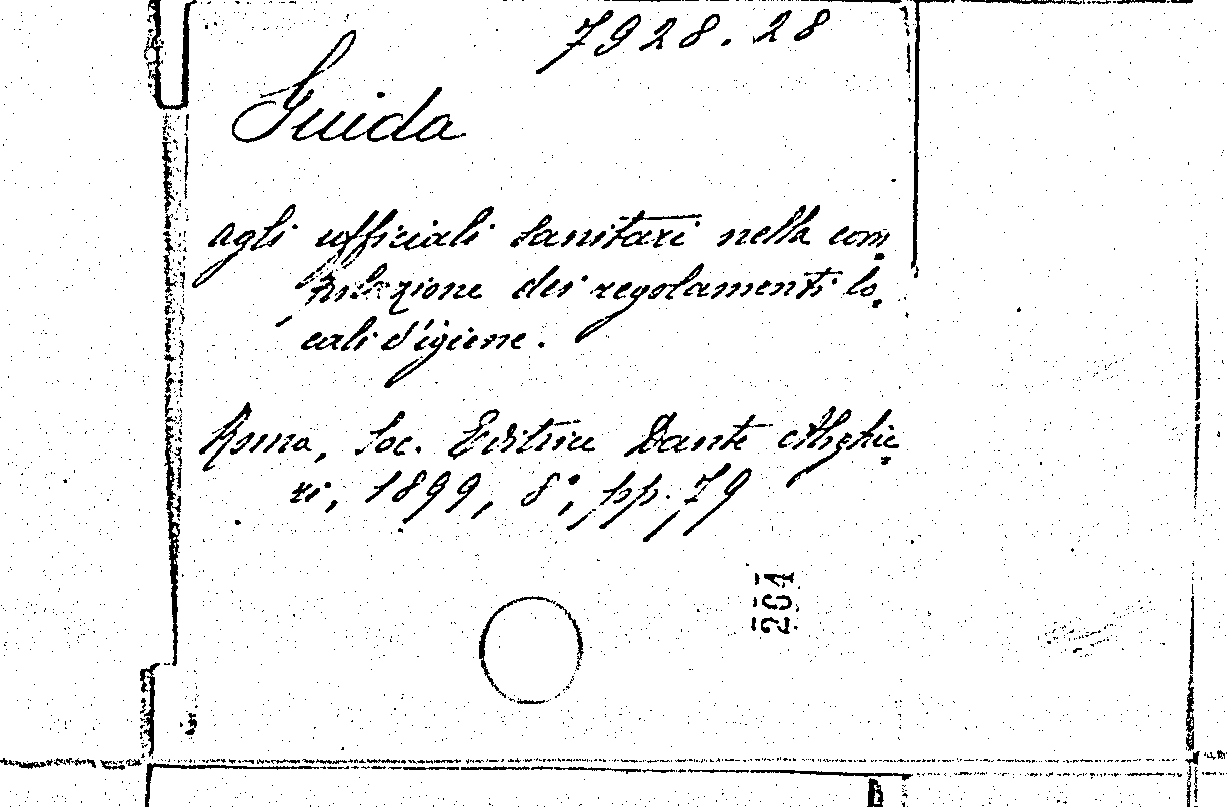 7928.28
Guida
agli ufficiali sanitari nella com
pilazione dei regolamenti lo
cali d'igiene.
Roma, Soc. Editrice Dante Alighie
ri, 1899, 8°, pp. 79
204